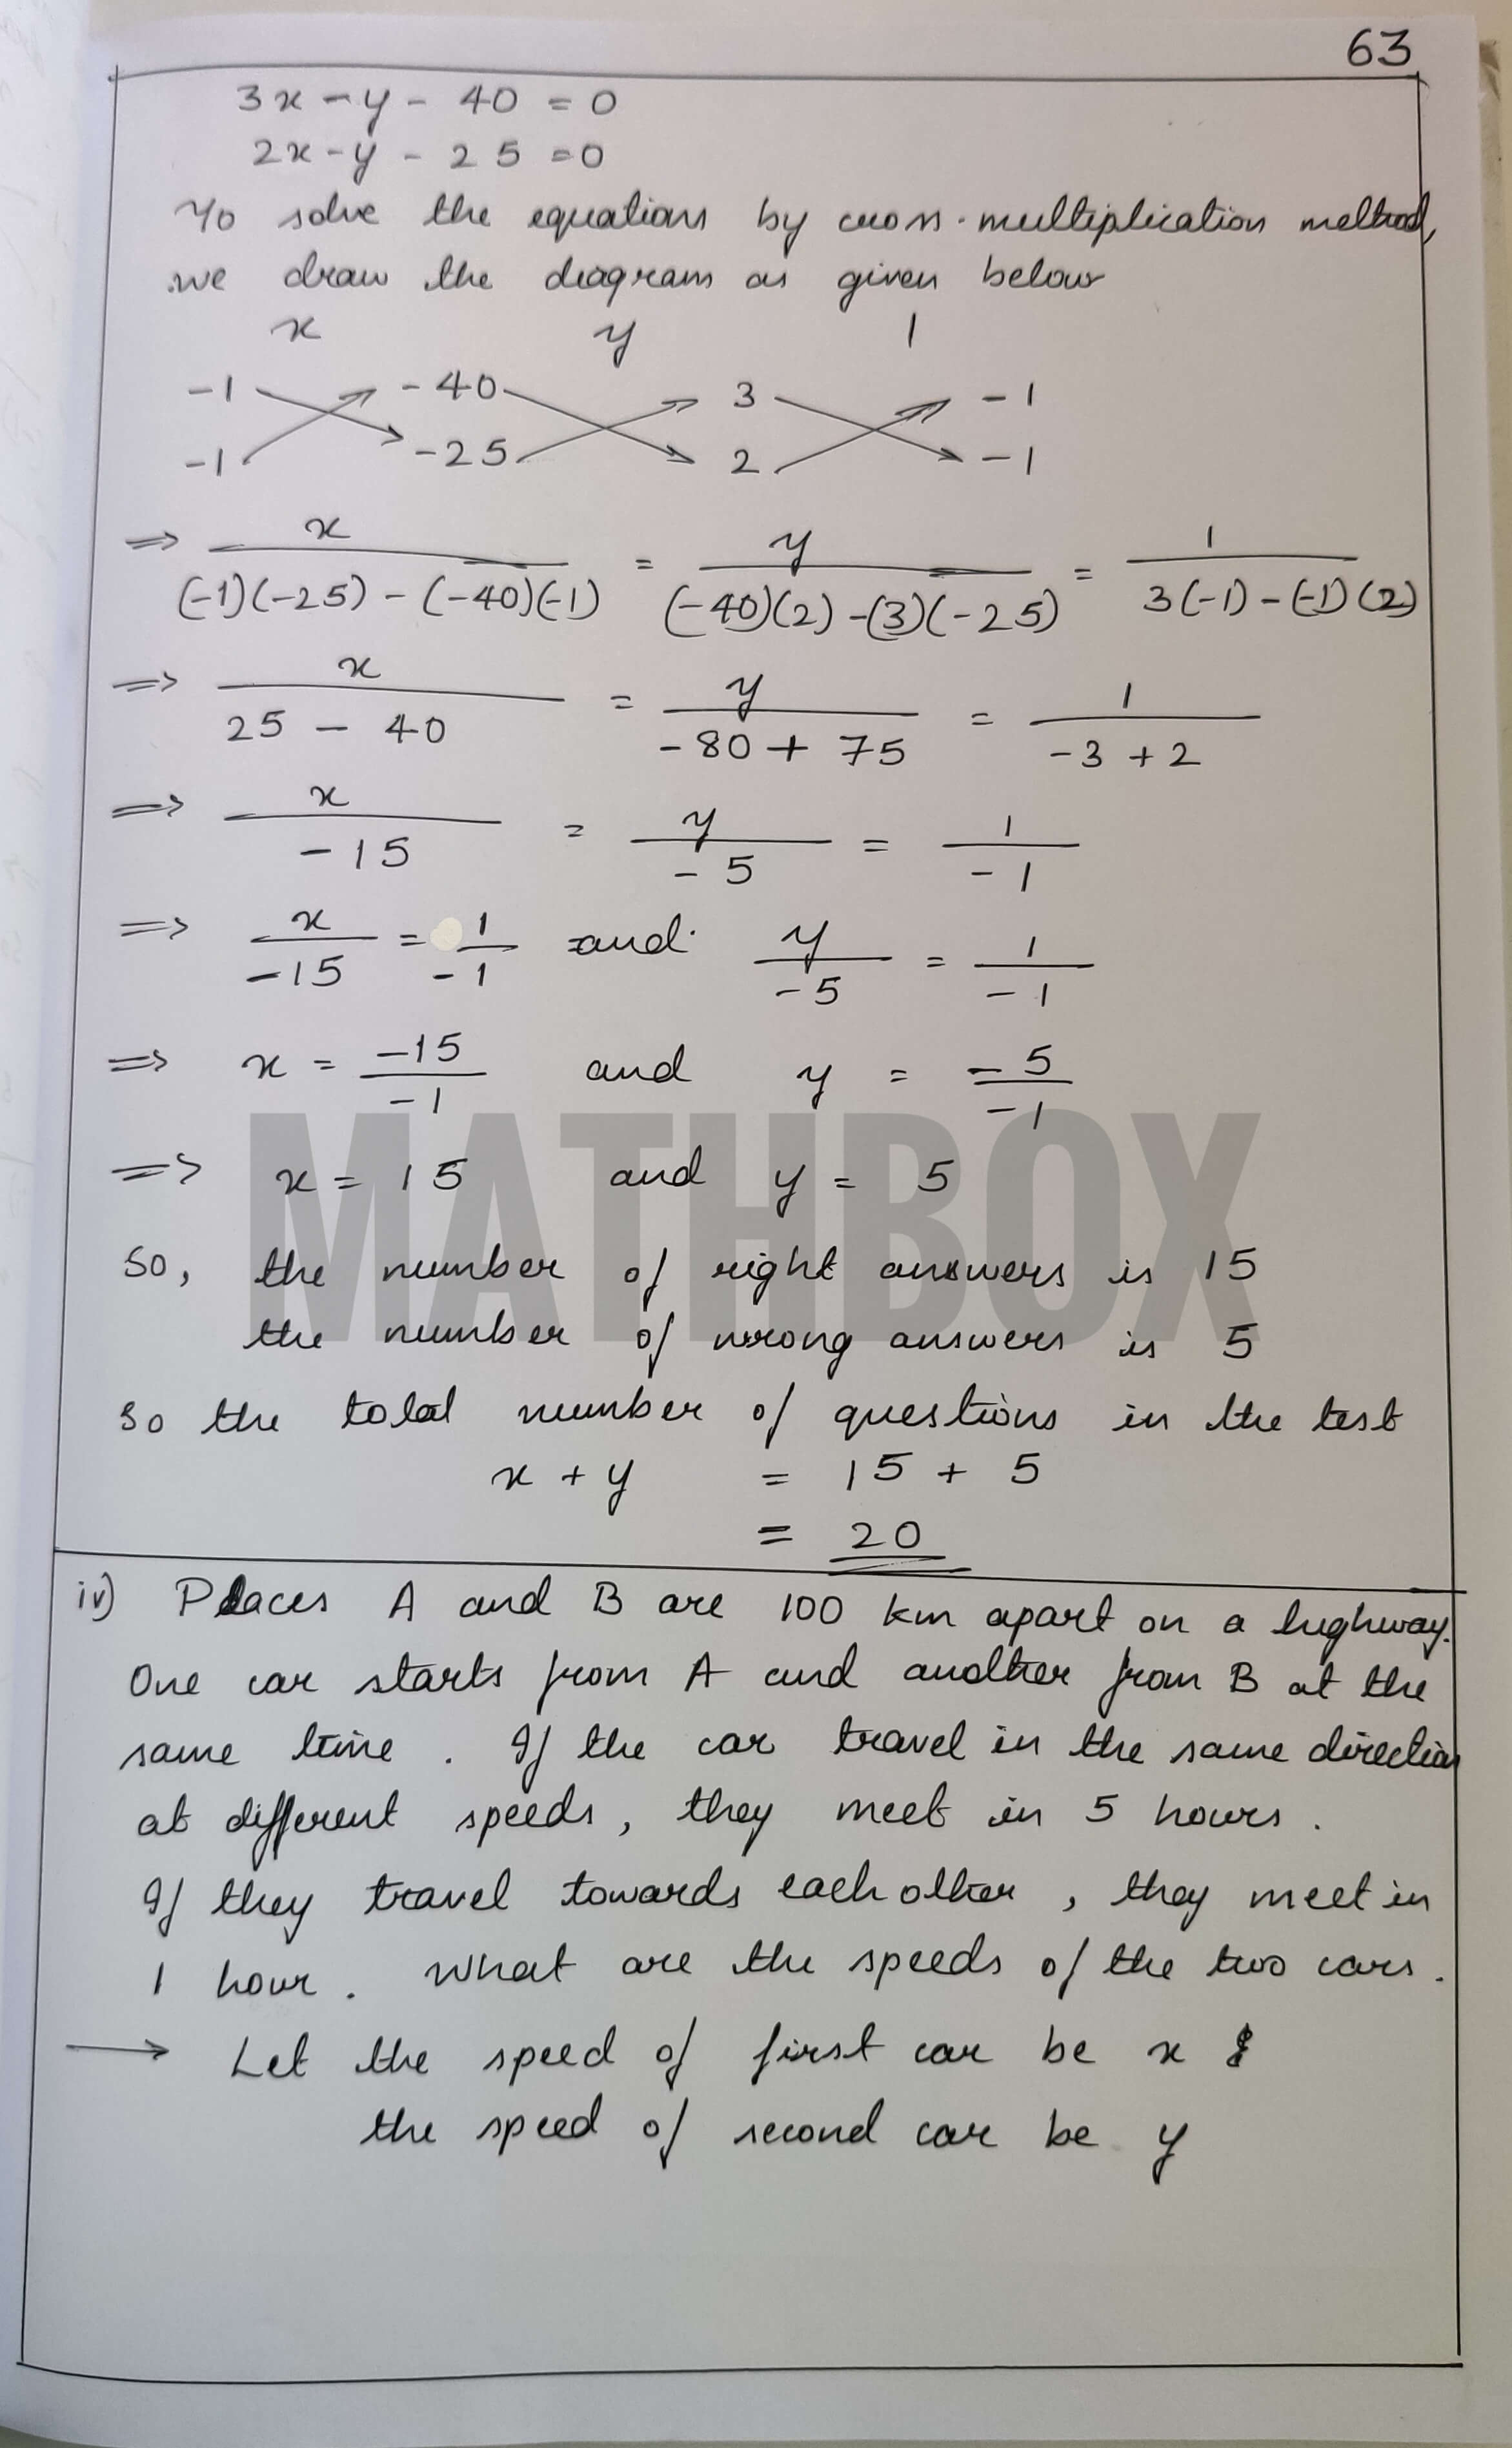 63
3x - y - 40 = 0
2x - y - 25 = 0
To solve the equations by cross-multiplication method,
we draw the diagram as given below
x y 1
-1 -40 3 -1
-1 -25 2 -1
⇒ x/((-1)(-25) - (-40)(-1)) = y/((-40)(2) - (3)(-25)) = 1/(3(-1) - (-1)(2))
⇒ x/(25 - 40) = y/(-80 + 75) = 1/(-3 + 2)
⇒ x/-15 = y/-5 = 1/-1
⇒ x/-15 = 1/-1 and y/-5 = 1/-1
⇒ x = -15/-1 and y = -5/-1
⇒ x = 15 and y = 5
MATHBOX
So, the number of right answers is 15
the number of wrong answers is 5
So the total number of questions in the test
x + y = 15 + 5
= 20
iv) Places A and B are 100 km apart on a highway.
One car starts from A and another from B at the
same time. If the car travel in the same direction
at different speeds, they meet in 5 hours.
If they travel towards each other, they meet in
1 hour. What are the speeds of the two cars.
→ Let the speed of first car be x &
the speed of second car be y